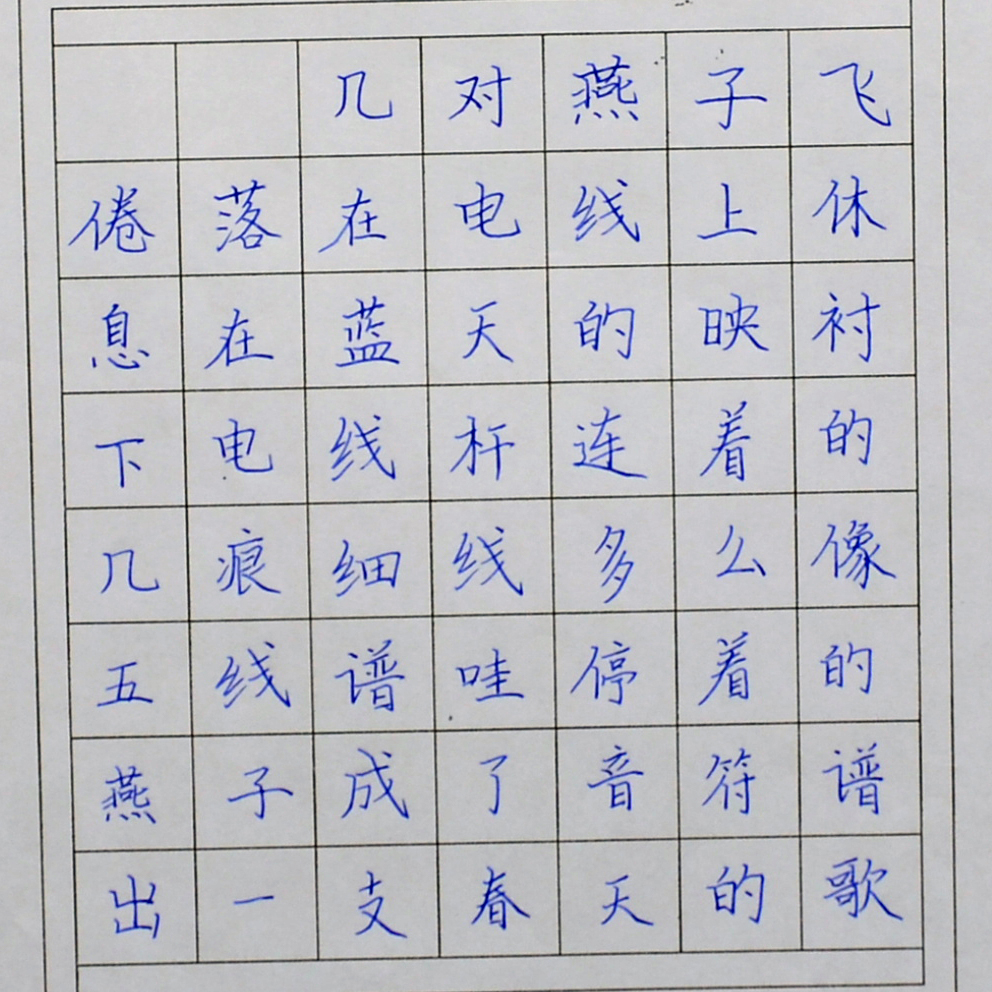 几对燕子飞
倦落在电线上休
息在蓝天的映衬
下电线杆连着的
几痕细线多么像
五线谱哇停着的
燕子成了音符谱
出一支春天的歌